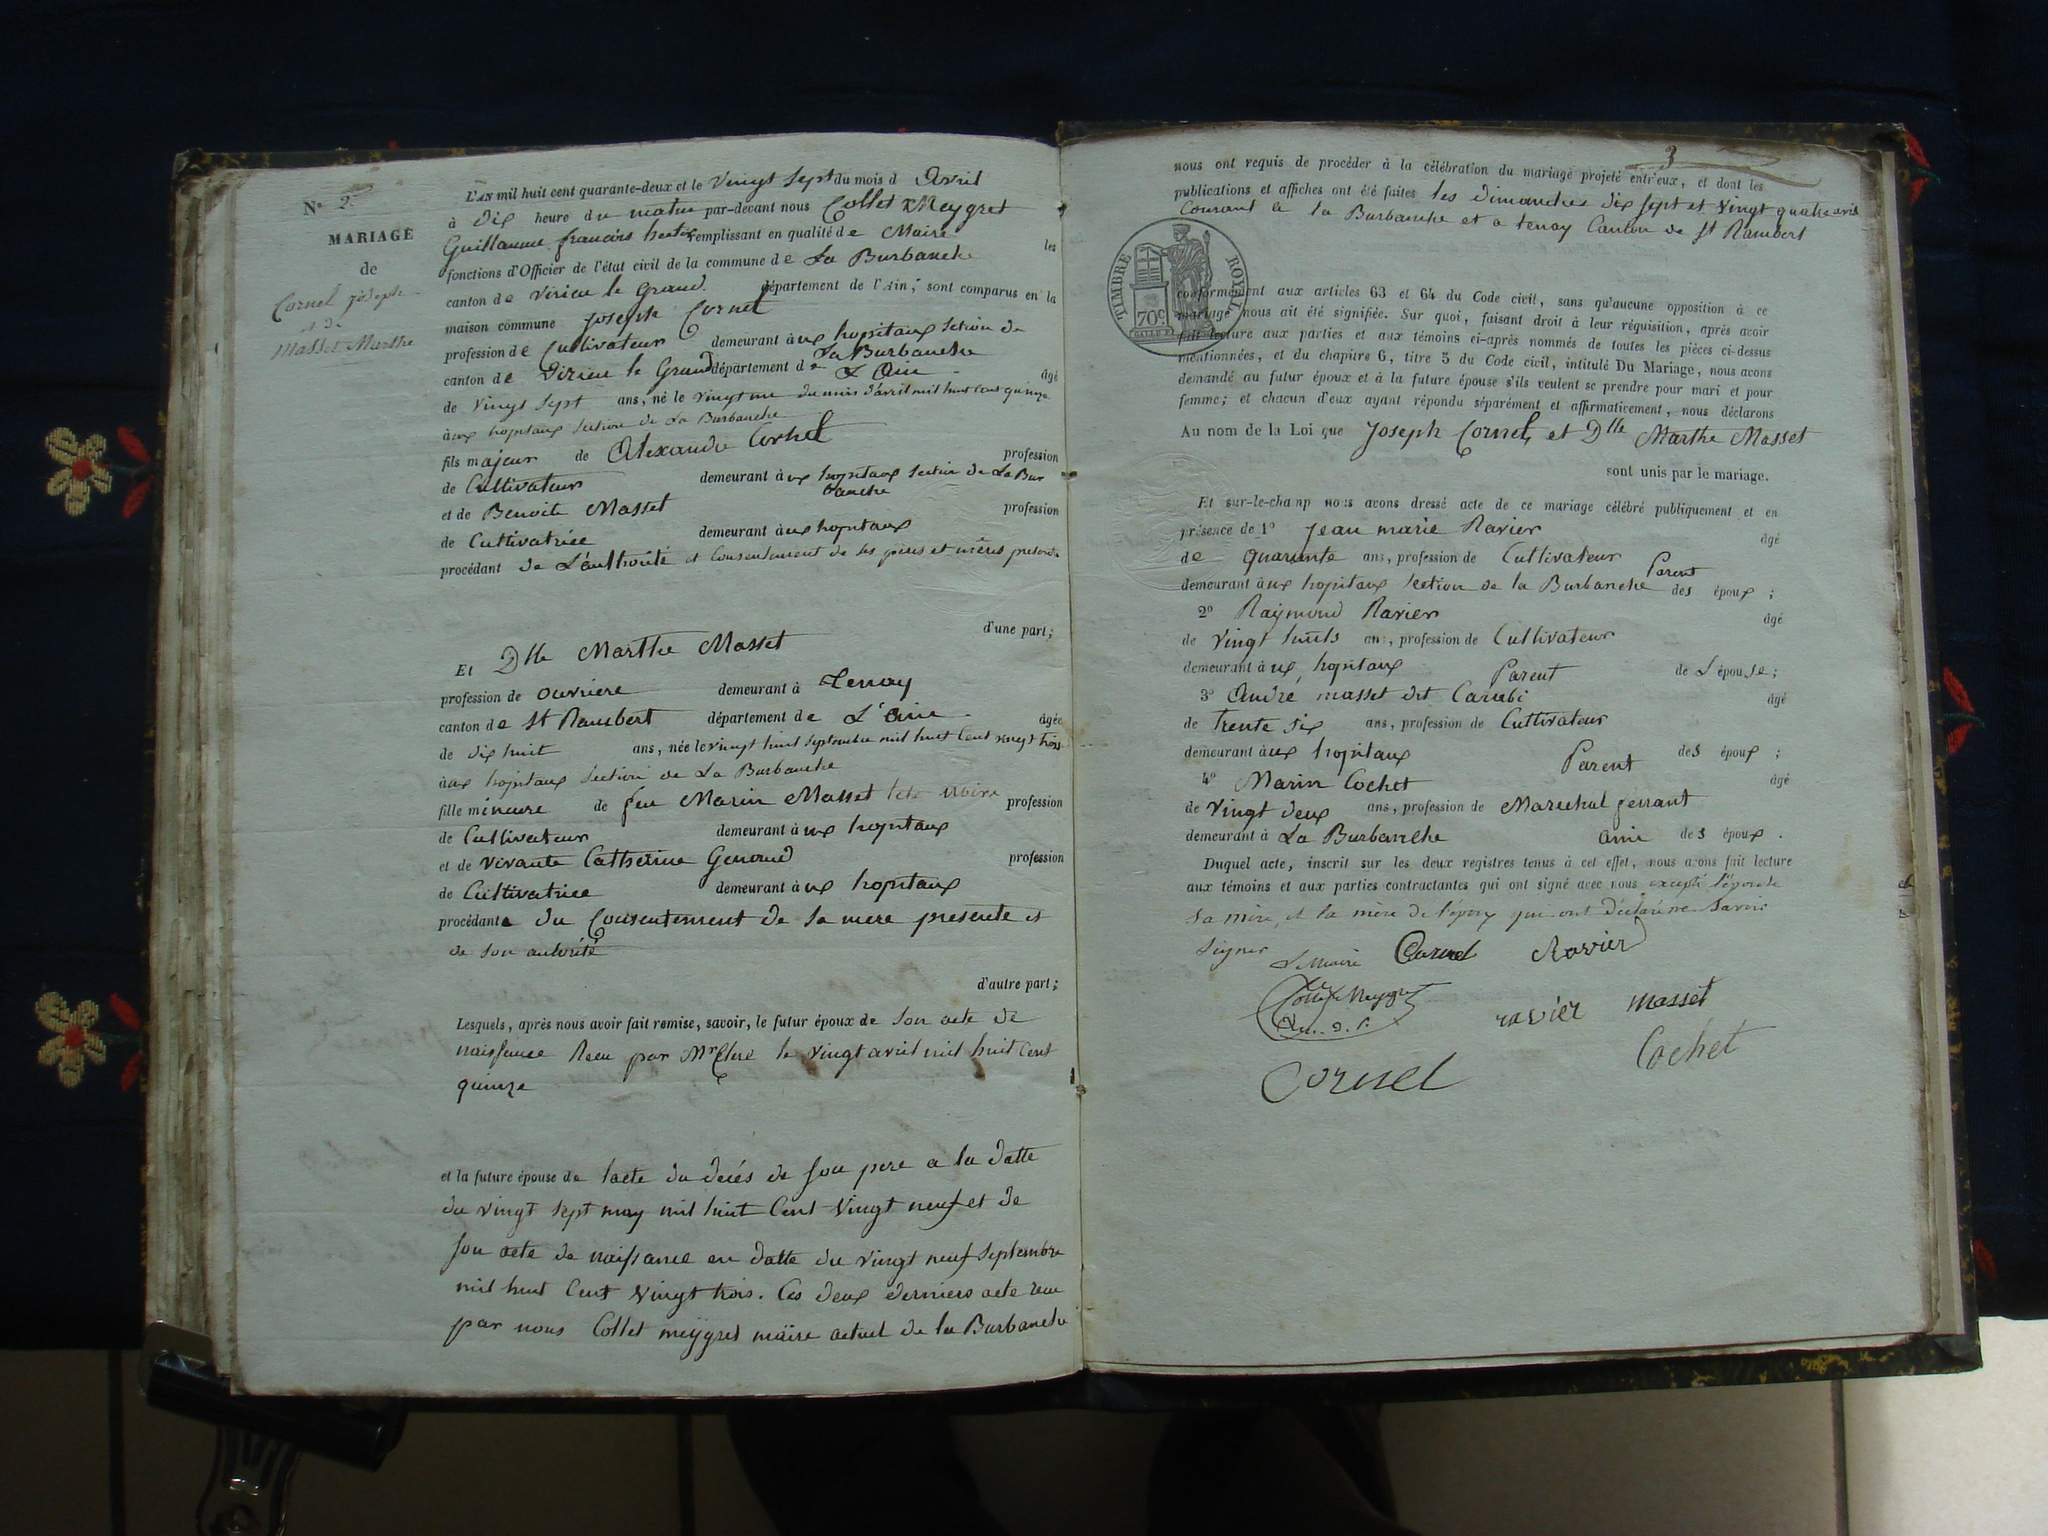 N° 2.
MARIAGE
de
Cornel joseph
et de
Masset Marthe
L'AN mil huit cent quarante-deux et le vingt sept du mois d Avril
à dix heure du matin par-devant nous Collet Meygret
Guillaume françois hector remplissant en qualité de Maire les
fonctions d'Officier de l'état civil de la commune de La Burbanche
canton de Virieu le Grand département de l'Ain, sont comparus en la
maison commune Joseph Cornel
profession de Cultivateur demeurant à ux hopitaux Section de
La Burbanche
canton de Virieu le Grand département de L'Ain âgé
de vingt sept ans, né le vingt un du mois d'avril mil huit cent quinze
à ux hopitaux Section de La Burbanche
fils majeur de Alexandre Cornel profession
de Cultivateur demeurant à ux hopitaux Section de La Bur
banche
et de Benoite Masset profession
de Cultivatrice demeurant à ux hopitaux
procédant de L'authorité et Consentement de ses pères et mères présents
d'une part;
Et Dlle Marthe Masset
profession de ouvriere demeurant à Tenay
canton de St Rambert département de L'Ain âgée
de dix huit ans, née le vingt huit Septembre mil huit Cent vingt trois
à ux hopitaux Section de La Burbanche
fille mineure de feu Marin Masset tete noire profession
de Cultivateur demeurant à ux hopitaux
et de vivante Catherine Genoud profession
de Cultivatrice demeurant à ux hopitaux
procédante du Consentement de Sa mere présente et
de son autorité
d'autre part;
Lesquels, après nous avoir fait remise, savoir, le futur époux de Son acte de
naissance Recu par Mr le vingt avril mil huit cent
quinze
et la future épouse de lacte du decés de Son pere a la datte
du vingt sept may mil huit Cent vingt neuf et de
Son acte de naissance en datte du vingt neuf Septembre
mil huit Cent vingt trois. Ces deux derniers acte recu
par nous Collet meygret maire actuel de la Burbanche
3
nous ont requis de procéder à la célébration du mariage projeté entr'eux, et dont les
publications et affiches ont été faites les dimanches dix sept et vingt quatre avril
Courant a la Burbanche et a tenay Canton de St Rambert
TIMBRE ROYAL
70c.
conformément aux articles 63 et 64 du Code civil, sans qu'aucune opposition à ce
mariage nous ait été signifiée. Sur quoi, faisant droit à leur réquisition, après avoir
fait lecture aux parties et aux témoins ci-après nommés de toutes les pièces ci-dessus
mentionnées, et du chapitre 6, titre 5 du Code civil, intitulé Du Mariage, nous avons
demandé au futur époux et à la future épouse s'ils veulent se prendre pour mari et pour
femme; et chacun d'eux ayant répondu séparément et affirmativement, nous déclarons
Au nom de la Loi que Joseph Cornel, et Dlle Marthe Masset
sont unis par le mariage.
Et sur-le-champ nous avons dressé acte de ce mariage célébré publiquement et en
présence de 1° Jean marie Ravier âgé
de quarante ans, profession de Cultivateur
demeurant à ux hopitaux Section de la Burbanche Parent des époux;
2° Raymond Ravier âgé
de vingt huits ans, profession de Cultivateur
demeurant à ux hopitaux Parent de L'épouse;
3° André masset dit Carabi âgé
de trente six ans, profession de Cultivateur
demeurant à ux hopitaux Parent des époux;
4° Marin Cochet âgé
de vingt deux ans, profession de Marechal ferrant
demeurant à La Burbanche ami des époux.
Duquel acte, inscrit sur les deux registres tenus à cet effet, nous avons fait lecture
aux témoins et aux parties contractantes qui ont signé avec nous excepté l'épouse
Sa mère, et la mère de l'époux qui ont déclaré ne Savoir
Signer Le Maire Cornel Ravier
Collet Meygret
ravier masset
Cochet
Cornel